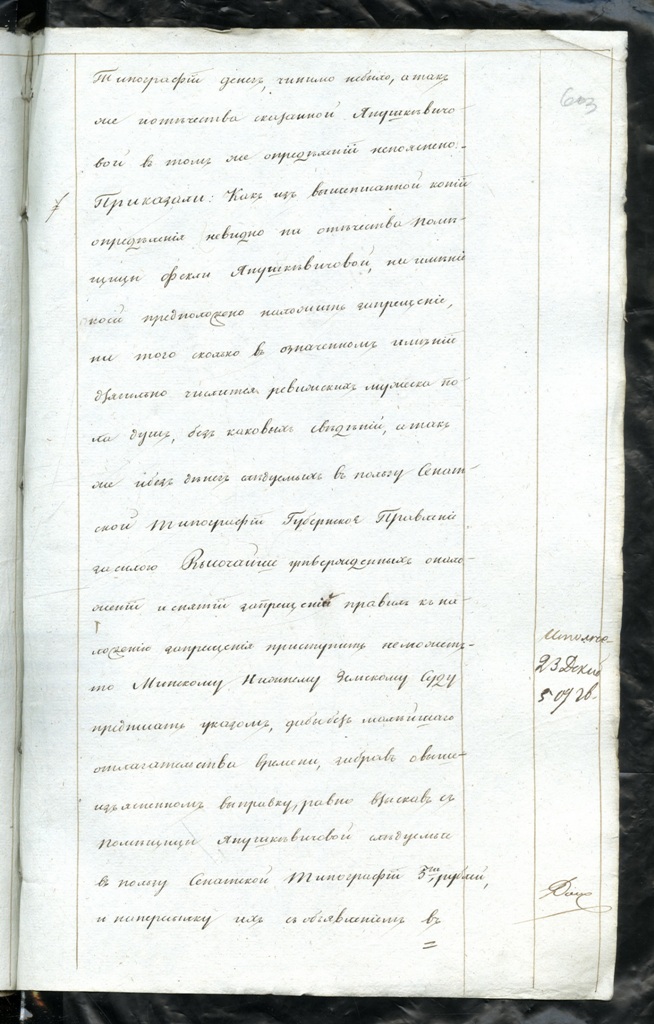 603
Типографіи денегъ, чинимо небыло, а так
же потчества сказанной Янушкевичо-
вой въ томъ же определеніи непояснено.
Приказали: Какъ изъ вышеписанной копіи
определенія невидно ни отчества Поме-
щицы Феклы Янушкевичовой, на имѣніе
коей предположено наложить запрещеніе,
ни того сколько въ означенномъ имѣніи
числится ревижскихъ мужеска по-
ла душъ, безъ каковыхъ свѣдѣній, а так
же и безъ денегъ следуемыхъ въ пользу Сенат-
ской Типографіи Губернское Правленіе
за силою Высочайше утвержденныхъ о нало-
женіи и снятіи запрещеній правилъ къ на-
ложенію запрещенія приступить неможетъ
то Минскому Нижнему Земскому Суду
предписать указомъ, дабы безъ малейшаго
отлагательства времени, забравъ о выше-
изъясненномъ выправку, равно взыскавъ съ
Помещицы Янушкевичовой следуемые
въ пользу Сенатской Типографіи 3 рублей,
и на пересылку ихъ съ объявленіемъ въ
23 Декаб